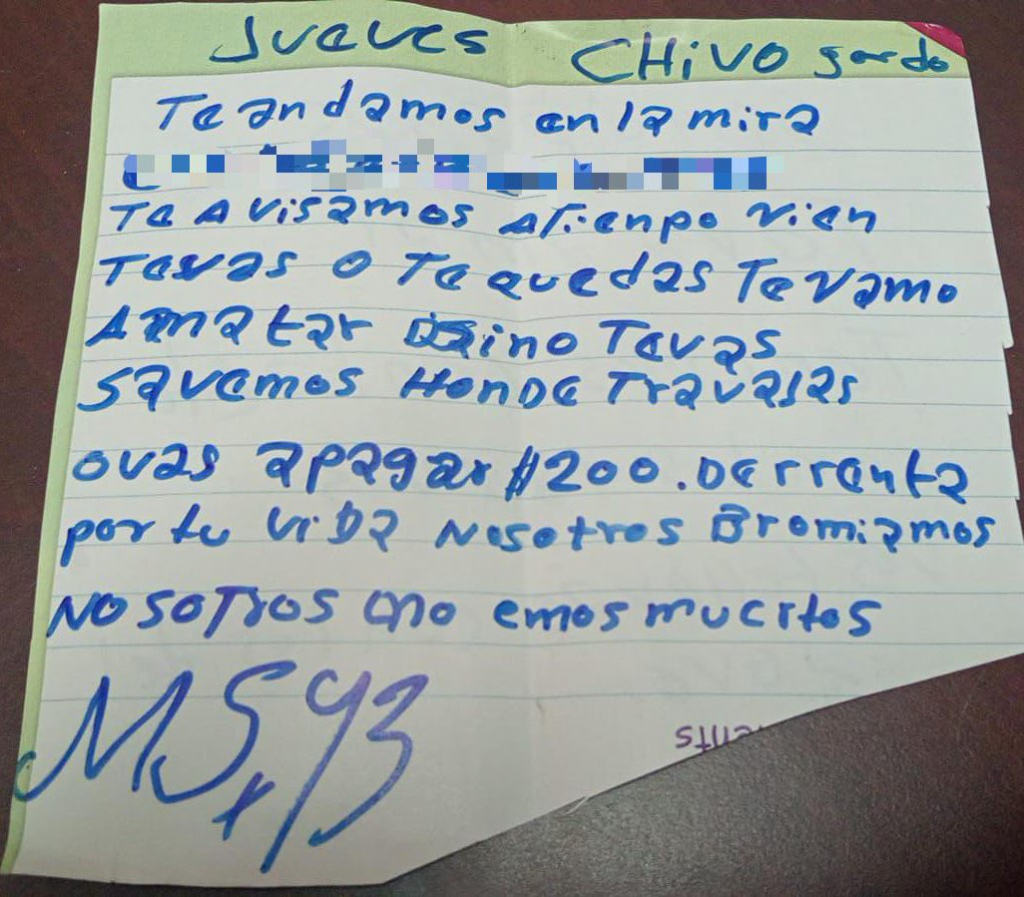 Jueves CHiVO gordo
Te andamos en la mira
Te Avisamos ATienpo vien
Tevas o Te quedas Te vamo
Amatar sino Tevas
savemos HonDe Travajas
ovas apagar $200. De rrenta
por tu ViDa Nosotros Bromiamos
Nosotros no emos muertos
MS, y 13